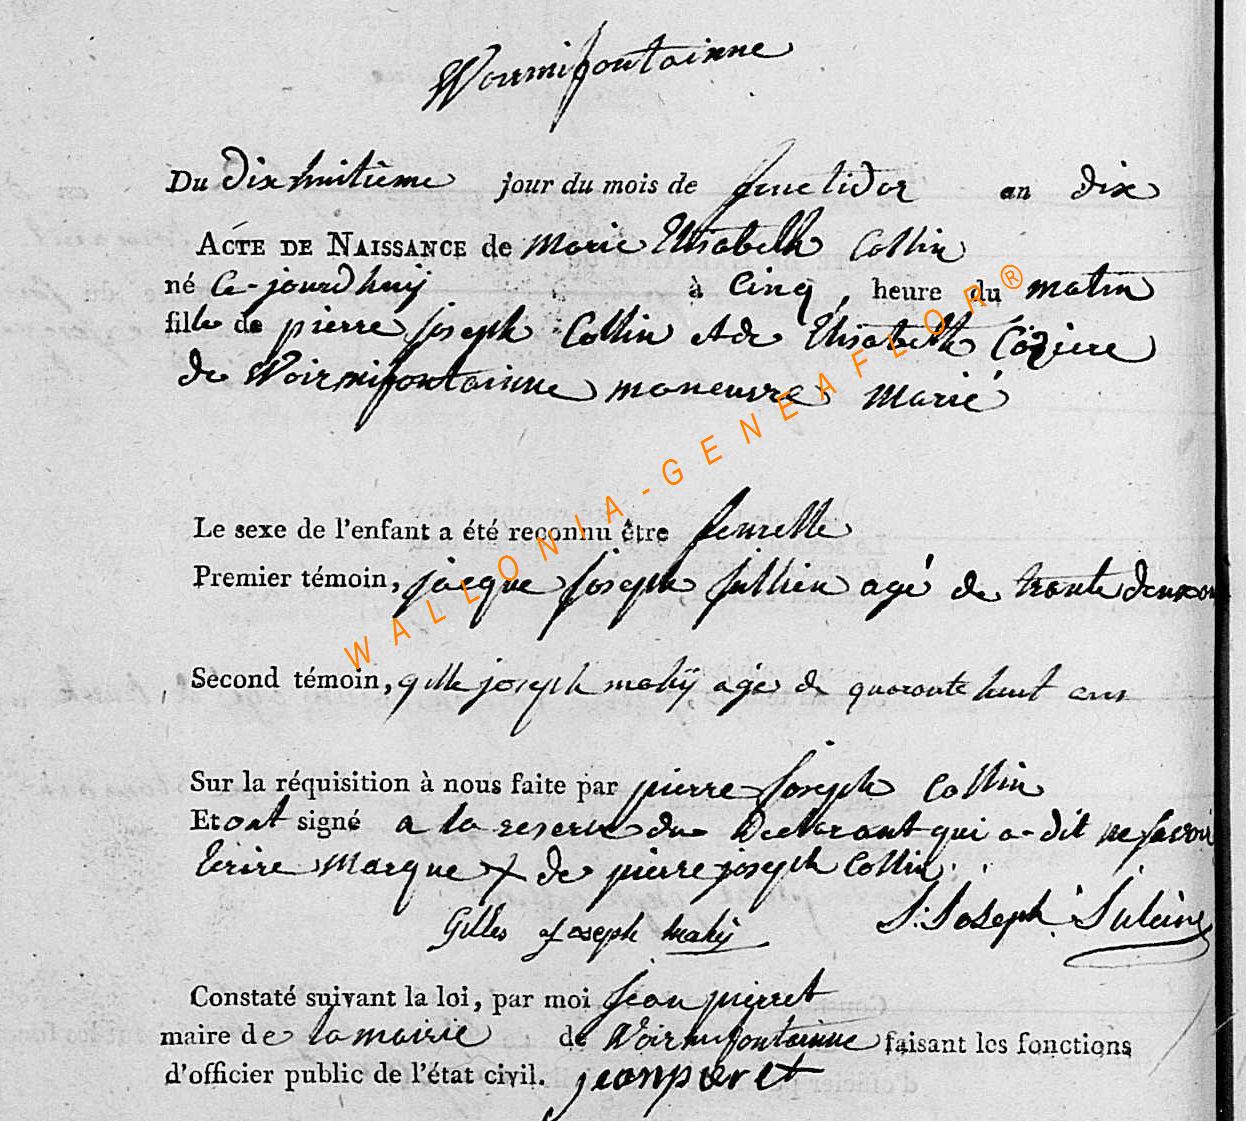 Wourmifontainne
Du dixhuitieme jour du mois de fructidor an dix
ACTE DE NAISSANCE de Marie Elisabeth Collin
né Ce-jourdhuij à Cinq heure du matin
fille de pierre joseph Collin et de Elisabeth Cozière
de Woirmifontainne maneuvre marié
Le sexe de l'enfant a été reconnu être femelle
Premier témoin, jacque joseph jullien agé de trante deux ans
Second témoin, gille joseph mahij agé de quarante huit ans
Sur la réquisition à nous faite par pierre joseph Collin
Et ont signé a la reserve du Declarant qui a dit ne savoir
Ecrire Marque + de pierre joseph Collin
Gilles joseph mahij J: Joseph
Constaté suivant la loi, par moi jean pierret
maire de la mairie de Woirmifontainne faisant les fonctions
d'officier public de l'état civil. jean pierret
WALLONIA-GENEAFLOR®